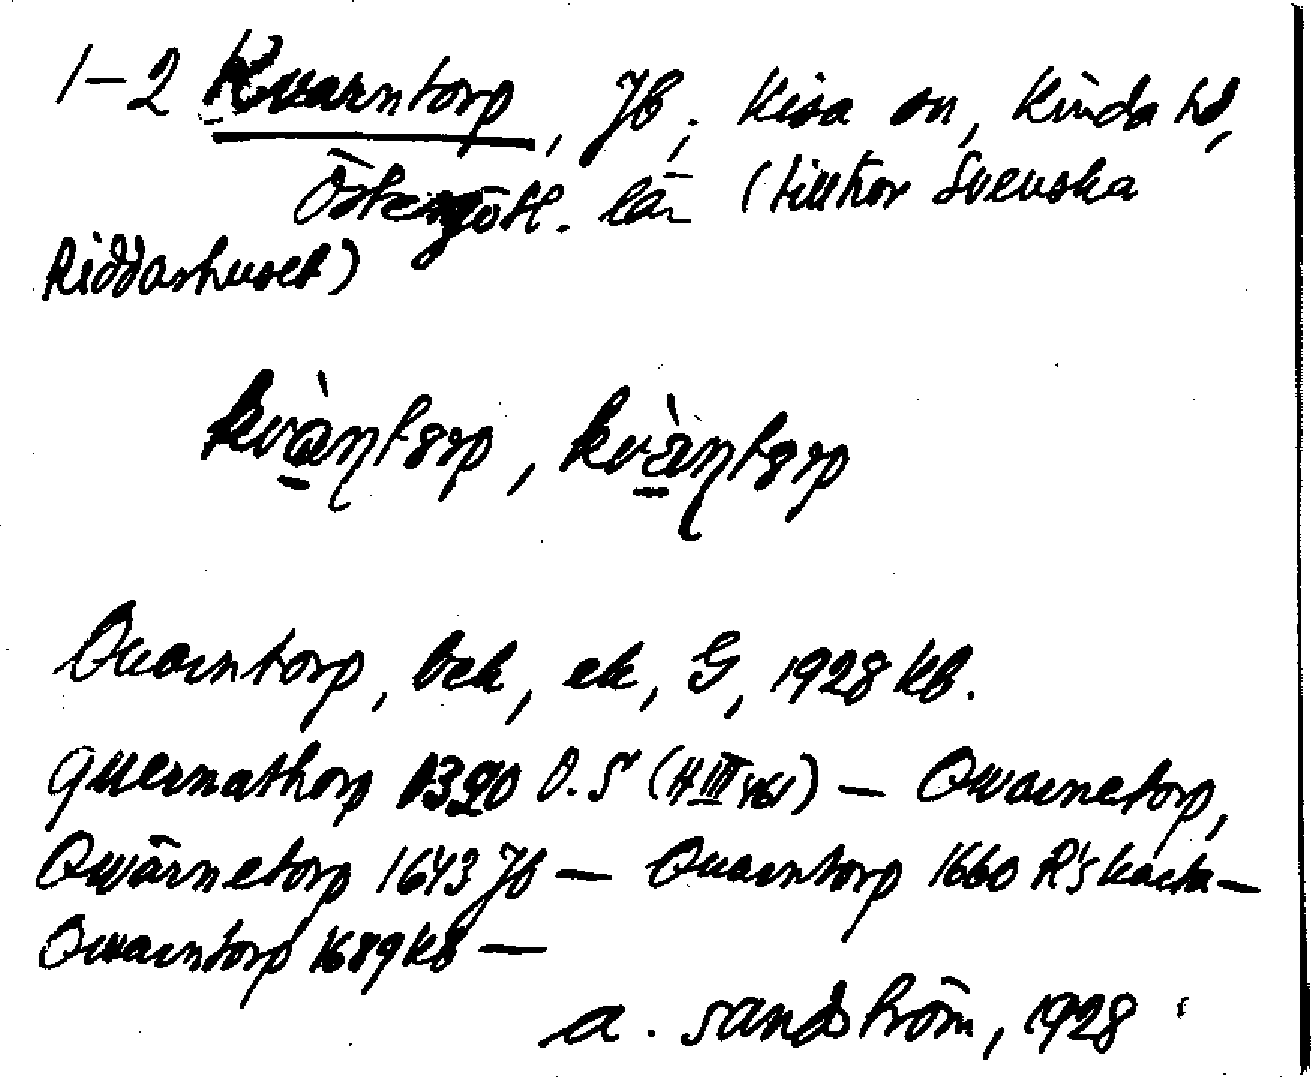 1–2 Kvarntorp, Jb; Kisa sn, Kinda hd,
Östergötl. län (tillhör Svenska
Riddarhuset)
kvàṇtorp, kvä̀ṇtorp
Qvarntorp, bek, ek, G, 1928 kb.
quernathorp 1390 O.S (H III 461) — Qwarnetorp,
Qwärnetorp 1643 Jb — Quarntorp 1660 R:s karta —
Qwarntorp 1689 kb —
A. Sandström, 1928